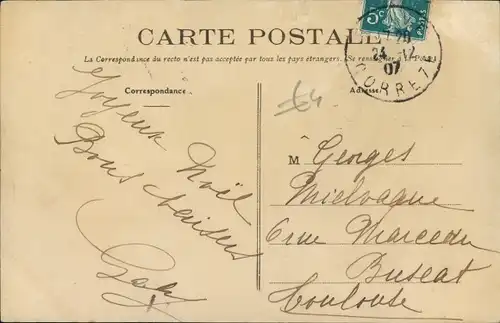 CARTE POSTALE
La Correspondance du recto n'est pas acceptée par tous les pays étrangers. (Se renseigner à la Poste)
Correspondance
Adresse
5c
24 -12
07
CORREZE
£4
Joyeux Noël
Bons baisers
M Georges
Mielvaque
6 rue Marceau
Buscat
Toulouse